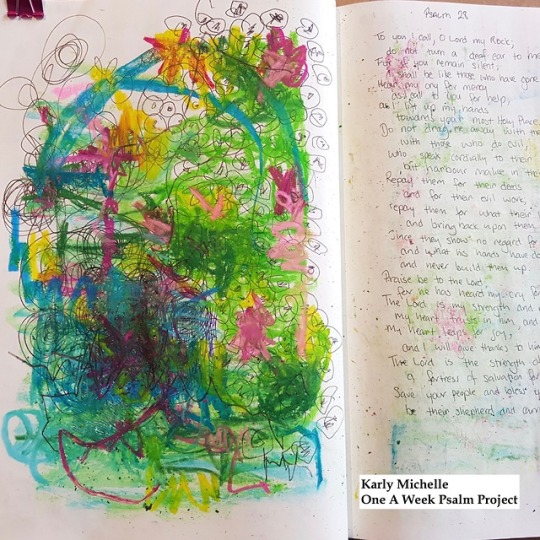 PSALM 28
To you I call, O Lord my Rock;
do not turn a deaf ear to me
For if you remain silent,
I shall be like those who have gone
Hear my cry for mercy
as I call to you for help,
as I lift up my hands
towards your most Holy
Do not drag me away with
with those who do evil
who speak cordially to their
but harbour malice in
Repay them for their deeds
and for their evil work;
repay them for what their
and bring back upon them
Since they show no regard for
and what his hands have
and never build them up.
Praise be to the Lord
for he has heard my cry for
The Lord is my strength and
my heart trusts in him, and
my heart leaps for joy,
and I will give thanks to him
The Lord is the strength of
a fortress of salvation for
Save your people and bless
be their shepherd and
Karly Michelle
One A Week Psalm Project